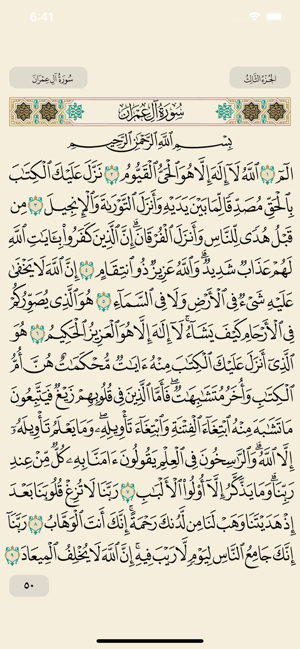 6:41
سُورَةُ آلِ عِمْرَانَ
الجُزْءُ الثَّالِثُ
سُورَةُ آلِ عِمْرَانَ
بِسْمِ اللَّهِ الرَّحْمَٰنِ الرَّحِيمِ
الٓمٓ ١ ٱللَّهُ لَآ إِلَٰهَ إِلَّا هُوَ ٱلْحَىُّ ٱلْقَيُّومُ ٢ نَزَّلَ عَلَيْكَ ٱلْكِتَٰبَ
بِٱلْحَقِّ مُصَدِّقًا لِّمَا بَيْنَ يَدَيْهِ وَأَنزَلَ ٱلتَّوْرَىٰةَ وَٱلْإِنجِيلَ ٣ مِن
قَبْلُ هُدًى لِّلنَّاسِ وَأَنزَلَ ٱلْفُرْقَانَ ۗ إِنَّ ٱلَّذِينَ كَفَرُوا۟ بِـَٔايَٰتِ ٱللَّهِ
لَهُمْ عَذَابٌ شَدِيدٌ ۗ وَٱللَّهُ عَزِيزٌ ذُو ٱنتِقَامٍ ٤ إِنَّ ٱللَّهَ لَا يَخْفَىٰ
عَلَيْهِ شَىْءٌ فِى ٱلْأَرْضِ وَلَا فِى ٱلسَّمَآءِ ٥ هُوَ ٱلَّذِى يُصَوِّرُكُمْ
فِى ٱلْأَرْحَامِ كَيْفَ يَشَآءُ ۚ لَآ إِلَٰهَ إِلَّا هُوَ ٱلْعَزِيزُ ٱلْحَكِيمُ ٦ هُوَ
ٱلَّذِىٓ أَنزَلَ عَلَيْكَ ٱلْكِتَٰبَ مِنْهُ ءَايَٰتٌ مُّحْكَمَٰتٌ هُنَّ أُمُّ
ٱلْكِتَٰبِ وَأُخَرُ مُتَشَٰبِهَٰتٌ ۖ فَأَمَّا ٱلَّذِينَ فِى قُلُوبِهِمْ زَيْغٌ فَيَتَّبِعُونَ
مَا تَشَٰبَهَ مِنْهُ ٱبْتِغَآءَ ٱلْفِتْنَةِ وَٱبْتِغَآءَ تَأْوِيلِهِۦ ۗ وَمَا يَعْلَمُ تَأْوِيلَهُۥٓ
إِلَّا ٱللَّهُ ۗ وَٱلرَّٰسِخُونَ فِى ٱلْعِلْمِ يَقُولُونَ ءَامَنَّا بِهِۦ كُلٌّ مِّنْ عِندِ
رَبِّنَا ۗ وَمَا يَذَّكَّرُ إِلَّآ أُو۟لُوا۟ ٱلْأَلْبَٰبِ ٧ رَبَّنَا لَا تُزِغْ قُلُوبَنَا بَعْدَ
إِذْ هَدَيْتَنَا وَهَبْ لَنَا مِن لَّدُنكَ رَحْمَةً ۚ إِنَّكَ أَنتَ ٱلْوَهَّابُ ٨ رَبَّنَآ
إِنَّكَ جَامِعُ ٱلنَّاسِ لِيَوْمٍ لَّا رَيْبَ فِيهِ ۚ إِنَّ ٱللَّهَ لَا يُخْلِفُ ٱلْمِيعَادَ ٩
٥٠